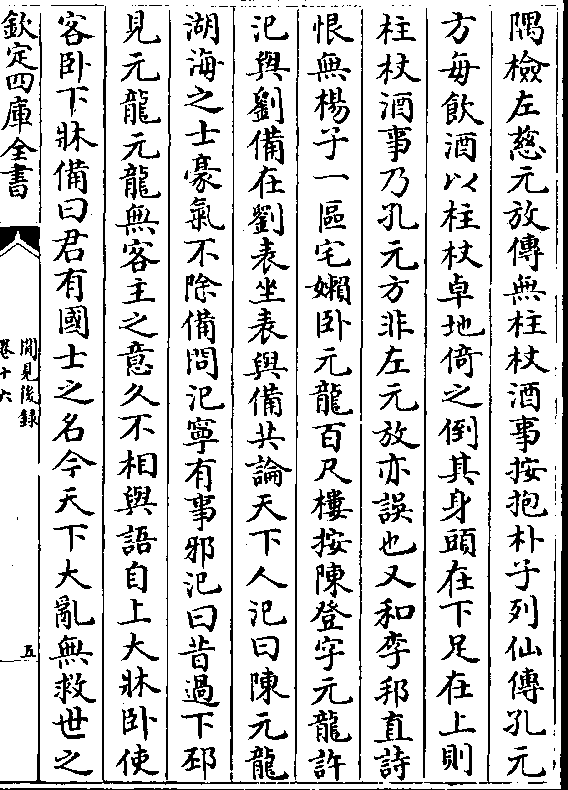 隅檢左慈元放傳無柱杖酒事按抱朴子列仙傳孔元
方每飲酒以柱杖卓地倚之倒其身頭在下足在上則
柱杖酒事乃孔元方非左元放亦誤也又和李邦直詩
恨無楊子一區宅嬾卧元龍百尺樓按陳登字元龍許
汜與劉備在劉表坐表與備共論天下人汜曰陳元龍
湖海之士豪氣不除備問汜寧有事邪汜曰昔過下邳
見元龍元龍無客主之意久不相與語自上大牀卧使
客卧下牀備曰君有國士之名今天下大亂無救世之
欽定四庫全書
聞見後録
卷十六
五